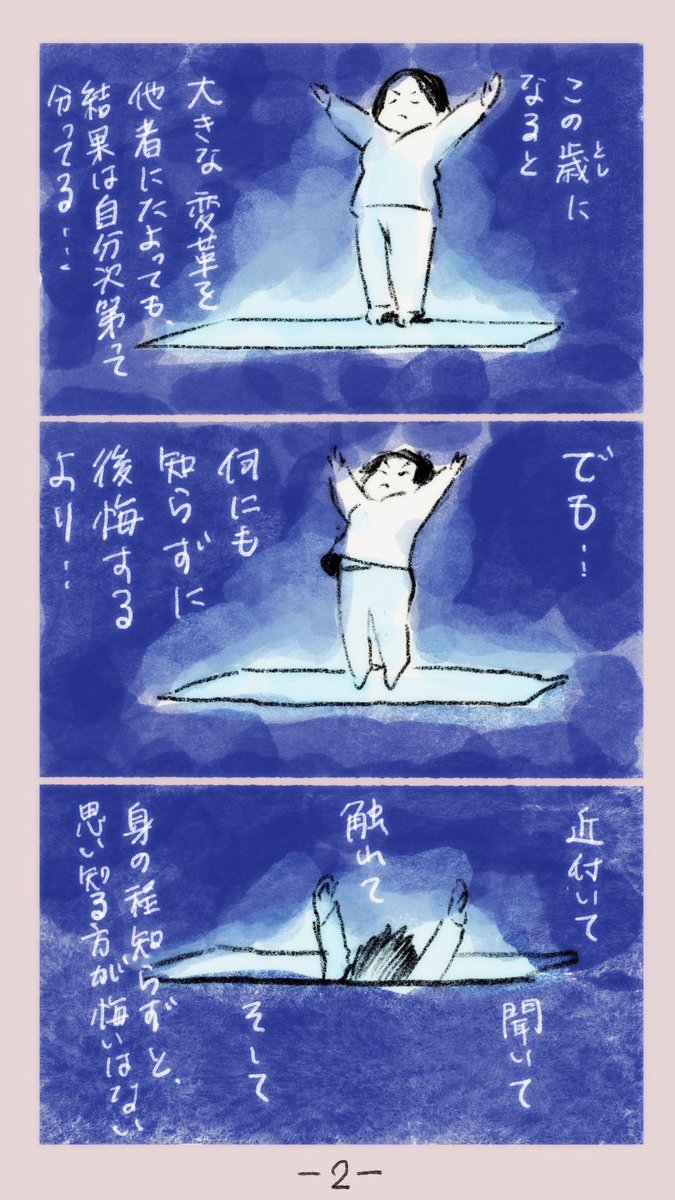 この歳に
とし
なると
大きな変革を
他者にたよっても、
結果は自分次第って
分ってる…
でも…
何にも
知らずに
後悔する
より…
近付いて
聞いて
触れて
そして
身の程知らずと、
思い知る方が悔いはない
-2-